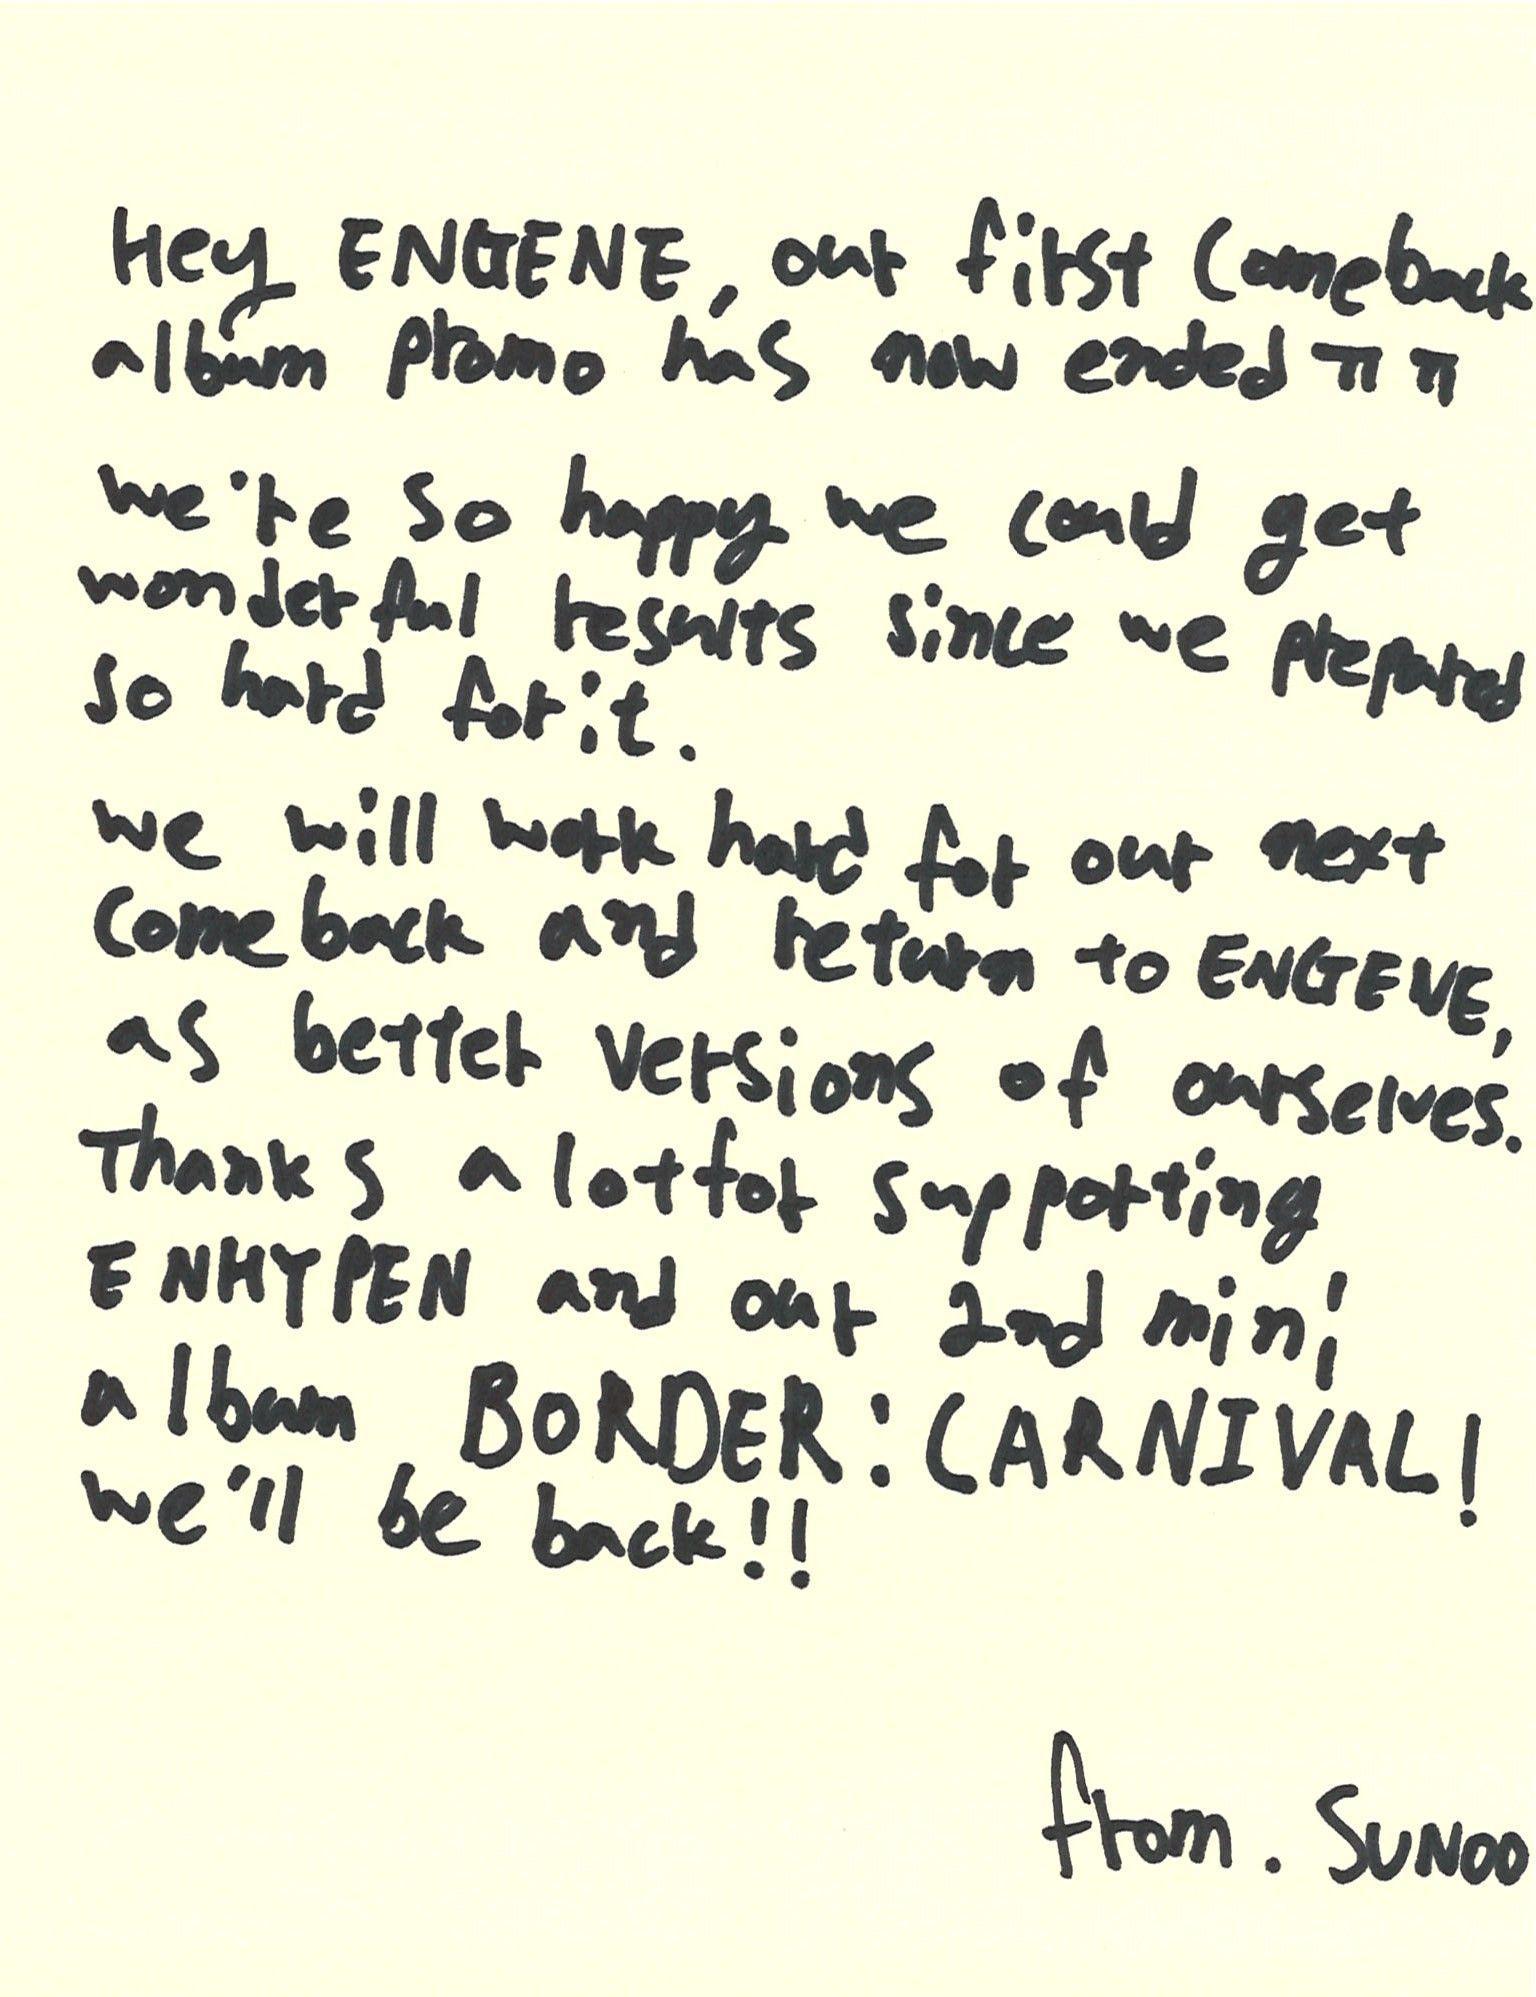 Hey ENGENE, our first comeback
album promo has now ended ㅠㅠ
we're so happy we could get
wonderful results since we prepared
so hard for it.
we will work hard for our next
comeback and return to ENGENE,
as better versions of ourselves.
Thanks a lot for supporting
ENHYPEN and our 2nd mini
album BORDER : CARNIVAL!
we'll be back!!
from. SUNOO